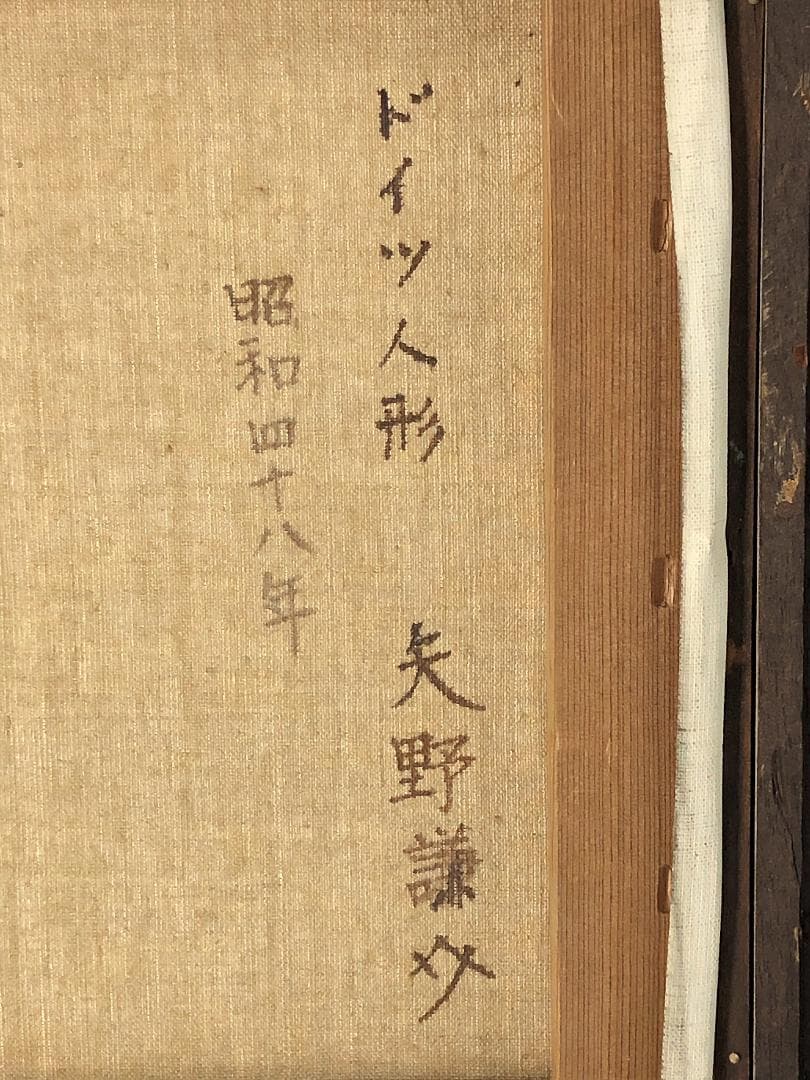 ドイツ人形 矢野謙
昭和四十八年